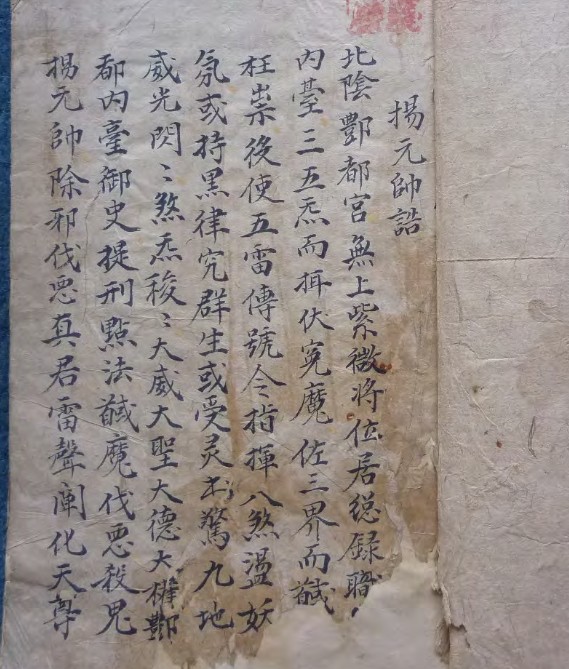 揚元帥誥
北陰酆都宮無上紫微將位居總録職
内臺三五炁而摂伏寃魔佐三界而馘
枉祟後使五雷傳號令指揮八煞盪妖
氛或持黑律究群生或受灵书驚九地
威光閃〻煞炁稜〻大威大聖大德大權酆
都内臺御史提刑點法馘魔伐惡殺鬼
楊元帥除邪伐惡真君雷聲闡化天尊